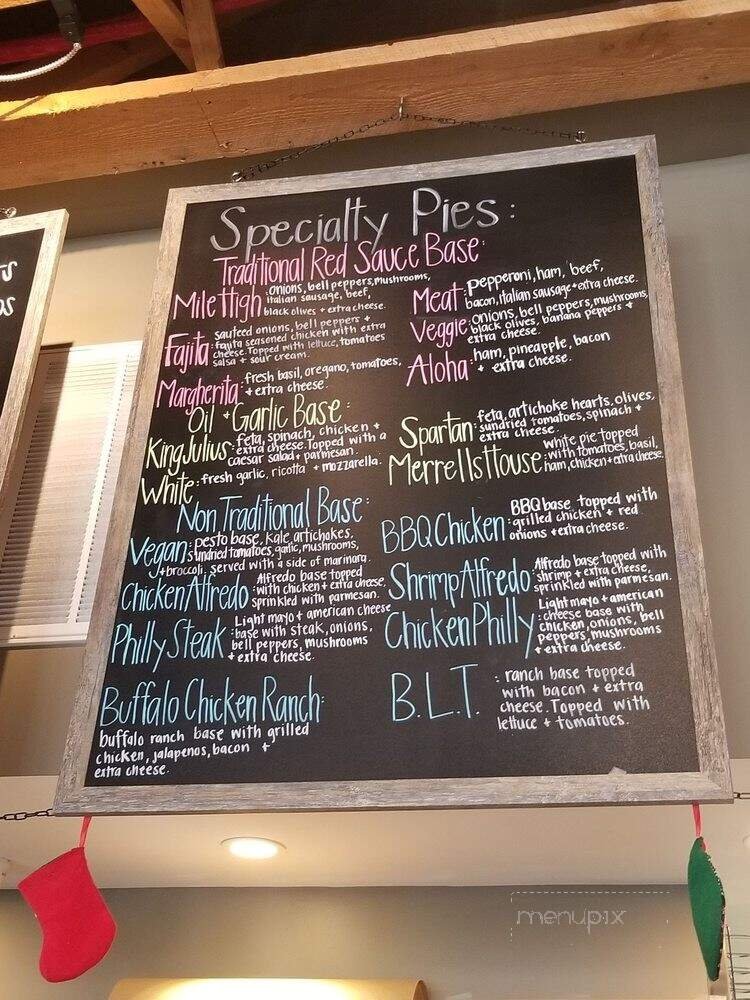 Specialty Pies:
Traditional Red Sauce Base:
Mile High: onions, bell peppers, mushrooms,
italian sausage, beef,
black olives + extra cheese.
Meat: Pepperoni, ham, beef,
bacon, italian sausage + extra cheese.
Fajita: sauteed onions, bell peppers +
fajita seasoned chicken with extra
cheese. Topped with lettuce, tomatoes
salsa + sour cream.
Veggie: onions, bell peppers, mushrooms,
black olives, banana peppers +
extra cheese.
Margherita: fresh basil, oregano, tomatoes,
+ extra cheese.
Aloha: ham, pineapple, bacon
+ extra cheese.
Oil + Garlic Base:
King Julius: feta, spinach, chicken +
extra cheese. Topped with a
caesar salad + parmesan.
Spartan: feta, artichoke hearts, olives,
sundried tomatoes, spinach +
extra cheese.
White: fresh garlic, ricotta + mozzarella.
Merrells House: white pie topped
with tomatoes, basil,
ham, chicken + extra cheese.
Non Traditional Base:
Vegan: pesto base, kale, artichokes,
sundried tomatoes, garlic, mushrooms,
+ broccoli. served with a side of marinara.
BBQ Chicken: BBQ base topped with
grilled chicken + red
onions + extra cheese.
Chicken Alfredo: Alfredo base topped
with chicken + extra cheese,
sprinkled with parmesan.
Shrimp Alfredo: Alfredo base topped with
shrimp + extra cheese,
sprinkled with parmesan.
Philly Steak: Light mayo + american cheese
base with steak, onions,
bell peppers, mushrooms
+ extra cheese.
Chicken Philly: Light mayo + american
cheese base with
chicken, onions, bell
peppers, mushrooms
+ extra cheese.
Buffalo Chicken Ranch:
buffalo ranch base with grilled
chicken, jalapenos, bacon +
extra cheese.
B.L.T. : ranch base topped
with bacon + extra
cheese. Topped with
lettuce + tomatoes.
menupix